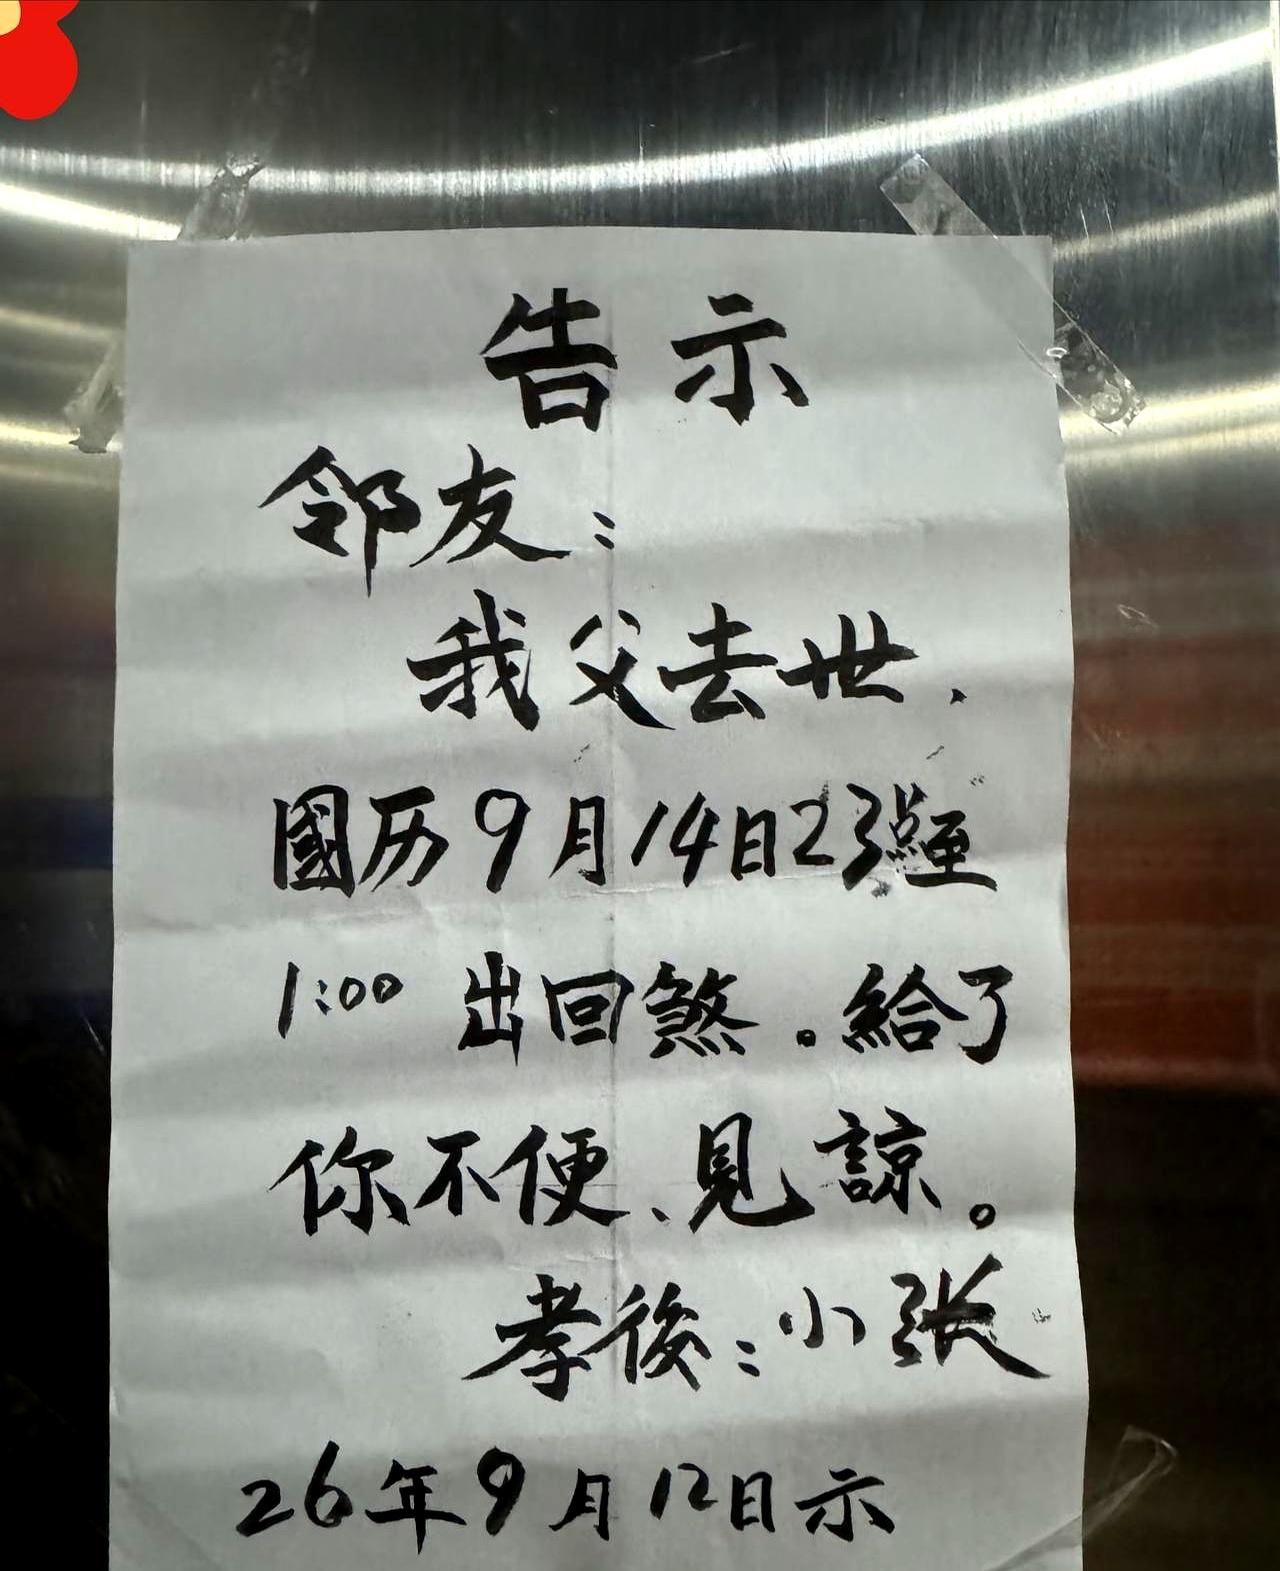 告示
邻友：
我父去世.
國历9月14日23點至
1:00 出回煞。給了
你不便、見諒。
孝後：小张
26年9月12日示